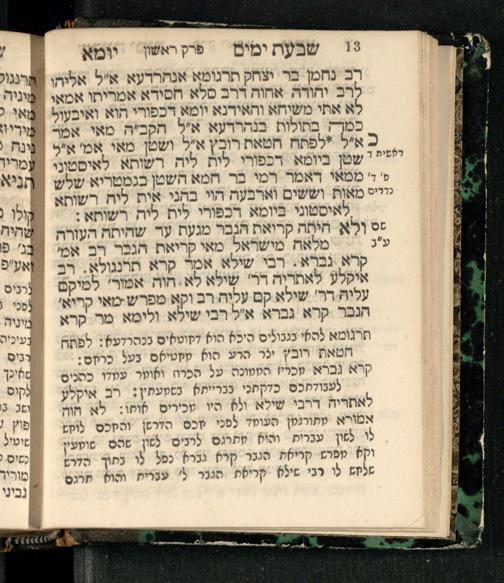 13 שבעת ימים פרק ראשון יומא
רב נחמן בר יצחק תרגומא אנהרדעא א״ל אליהו
לרב יהודה אחוה דרב סלא חסידא אמריתו אמאי
לא אתי משיחא והאידנא יומא דכפורי הוא ואיבעול
כמה בתולות בנהרדעא א״ל הקב״ה מאי אמר
א״ל *לפתח חטאת רובץ א״ל ושטן מאי אמ׳ א״ל
שטן ביומא דכפורי לית ליה רשותא לאיסטוני
ממאי דאמר רמי בר חמא השטן בגמטריא שלש
מאות וששים וארבעה הוי בהני אית ליה רשותא
לאיסטוני ביומא דכפורי לית ליה רשותא :
ולא היתה קריאת הגבר מגעת עד שהיתה העזרה
מלאה מישראל מאי קריאת הגבר רב אמ׳
קרא גברא. רבי שילא אמר קרא תרנגולא. רב
איקלע לאתריה דר׳ שילא לא הוה אמור׳ למיקם
עליה דר׳ שילא קם עליה רב וקא מפרש מאי קריא׳
הגבר קרא גברא א״ל רבי שילא ולימא מר קרא
תרגומא להאי בגבולים היכא הוא דקוטאים בנהרדעא: לפתח
חטאת רובץ יצר הרע הוא מחטיאם בעל כרחם:
קרא גברא מכריז הממונה על הכרוז ואומר עמדו כהנים
לעבודתכם כדקתני בברייתא בשמעתין: רב איקלע
לאתריה דרבי שילא ולא היו מכירים אותו: לא הוה
אמורא מתורגמן העומד לפני חכם הדרשן והחכם לוחש
לו לשון עברית והוא מתרגם לרבים לשון שהם שומעין
וקא מפרש קריאת הגבר קרא גברא נפל לו בתוך הדרש
שלחש לו רבי שילא קריאת הגבר ל׳ עברית והוא תרגם
ראשית ד
פ׳ ד׳
נדרים
שם
ע״ב